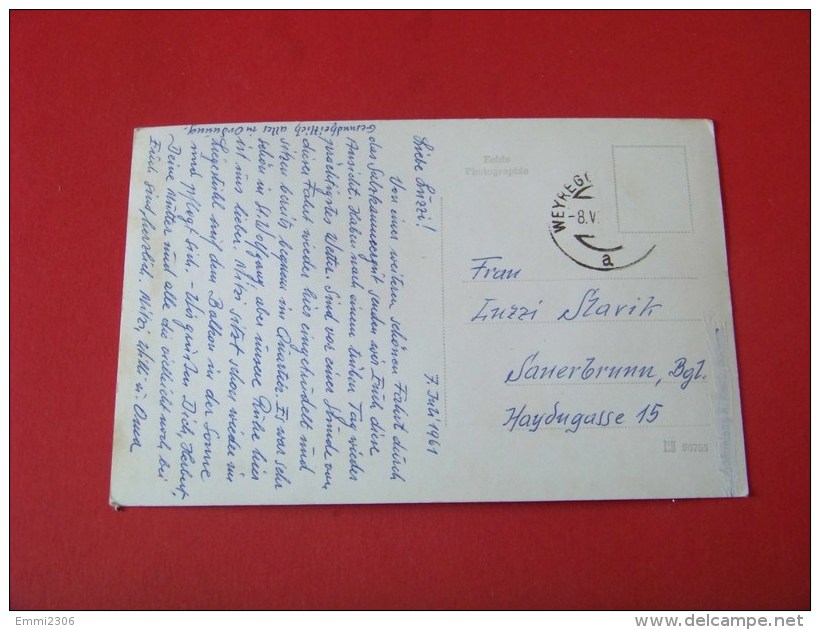 7. Juli 1961
Liebe Luzzi!
Von einer weiteren schönen Fahrt durch
das Salzkammergut senden wir Euch diese
Ansicht. Haben nach einem trüben Tag wieder
prächtigstes Wetter. Sind vor einer Stunde von
dieser Fahrt wieder hier eingetrudelt und
sitzen bereits bequem im Quartier. Es war sehr
schön in St. Wolfgang, aber unsere Ruhe hier
ist uns lieber. Mitzi sitzt schon wieder im
Liegestuhl auf dem Balkon in der Sonne
und pflegt sich. – Wir grüßen Dich, Herbert,
Deine Mutter und alle die vielleicht noch bei
Euch sind herzlich. Mitzi, Willi u. Oma
Gesundheitlich alles in Ordnung.
Echte
Photographie
WEYREG
-8.V
a
Frau
Luzzi Slavik
Sauerbrunn, Bgl.
Haydngasse 15
Emmi2306
www.delcampe.net